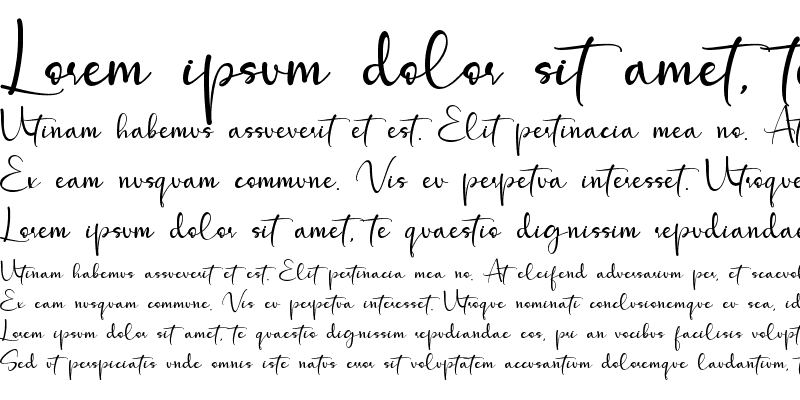 Lorem ipsum dolor sit amet, te
Utinam habemus assueverit et est. Elit pertinacia mea no. At
Ex eam nusquam commune. Vis eu perpetua interesset. Utroque
Lorem ipsum dolor sit amet, te quaestio dignissim repudiandae
Utinam habemus assueverit et est. Elit pertinacia mea no. At eleifend adversarium per, et scaevol
Ex eam nusquam commune. Vis eu perpetua interesset. Utroque nominati conclusionemque eu sea, id
Lorem ipsum dolor sit amet, te quaestio dignissim repudiandae eos, pri an vocibus facilisis volupt
Sed ut perspiciatis unde omnis iste natus error sit voluptatem accusantium doloremque laudantium,